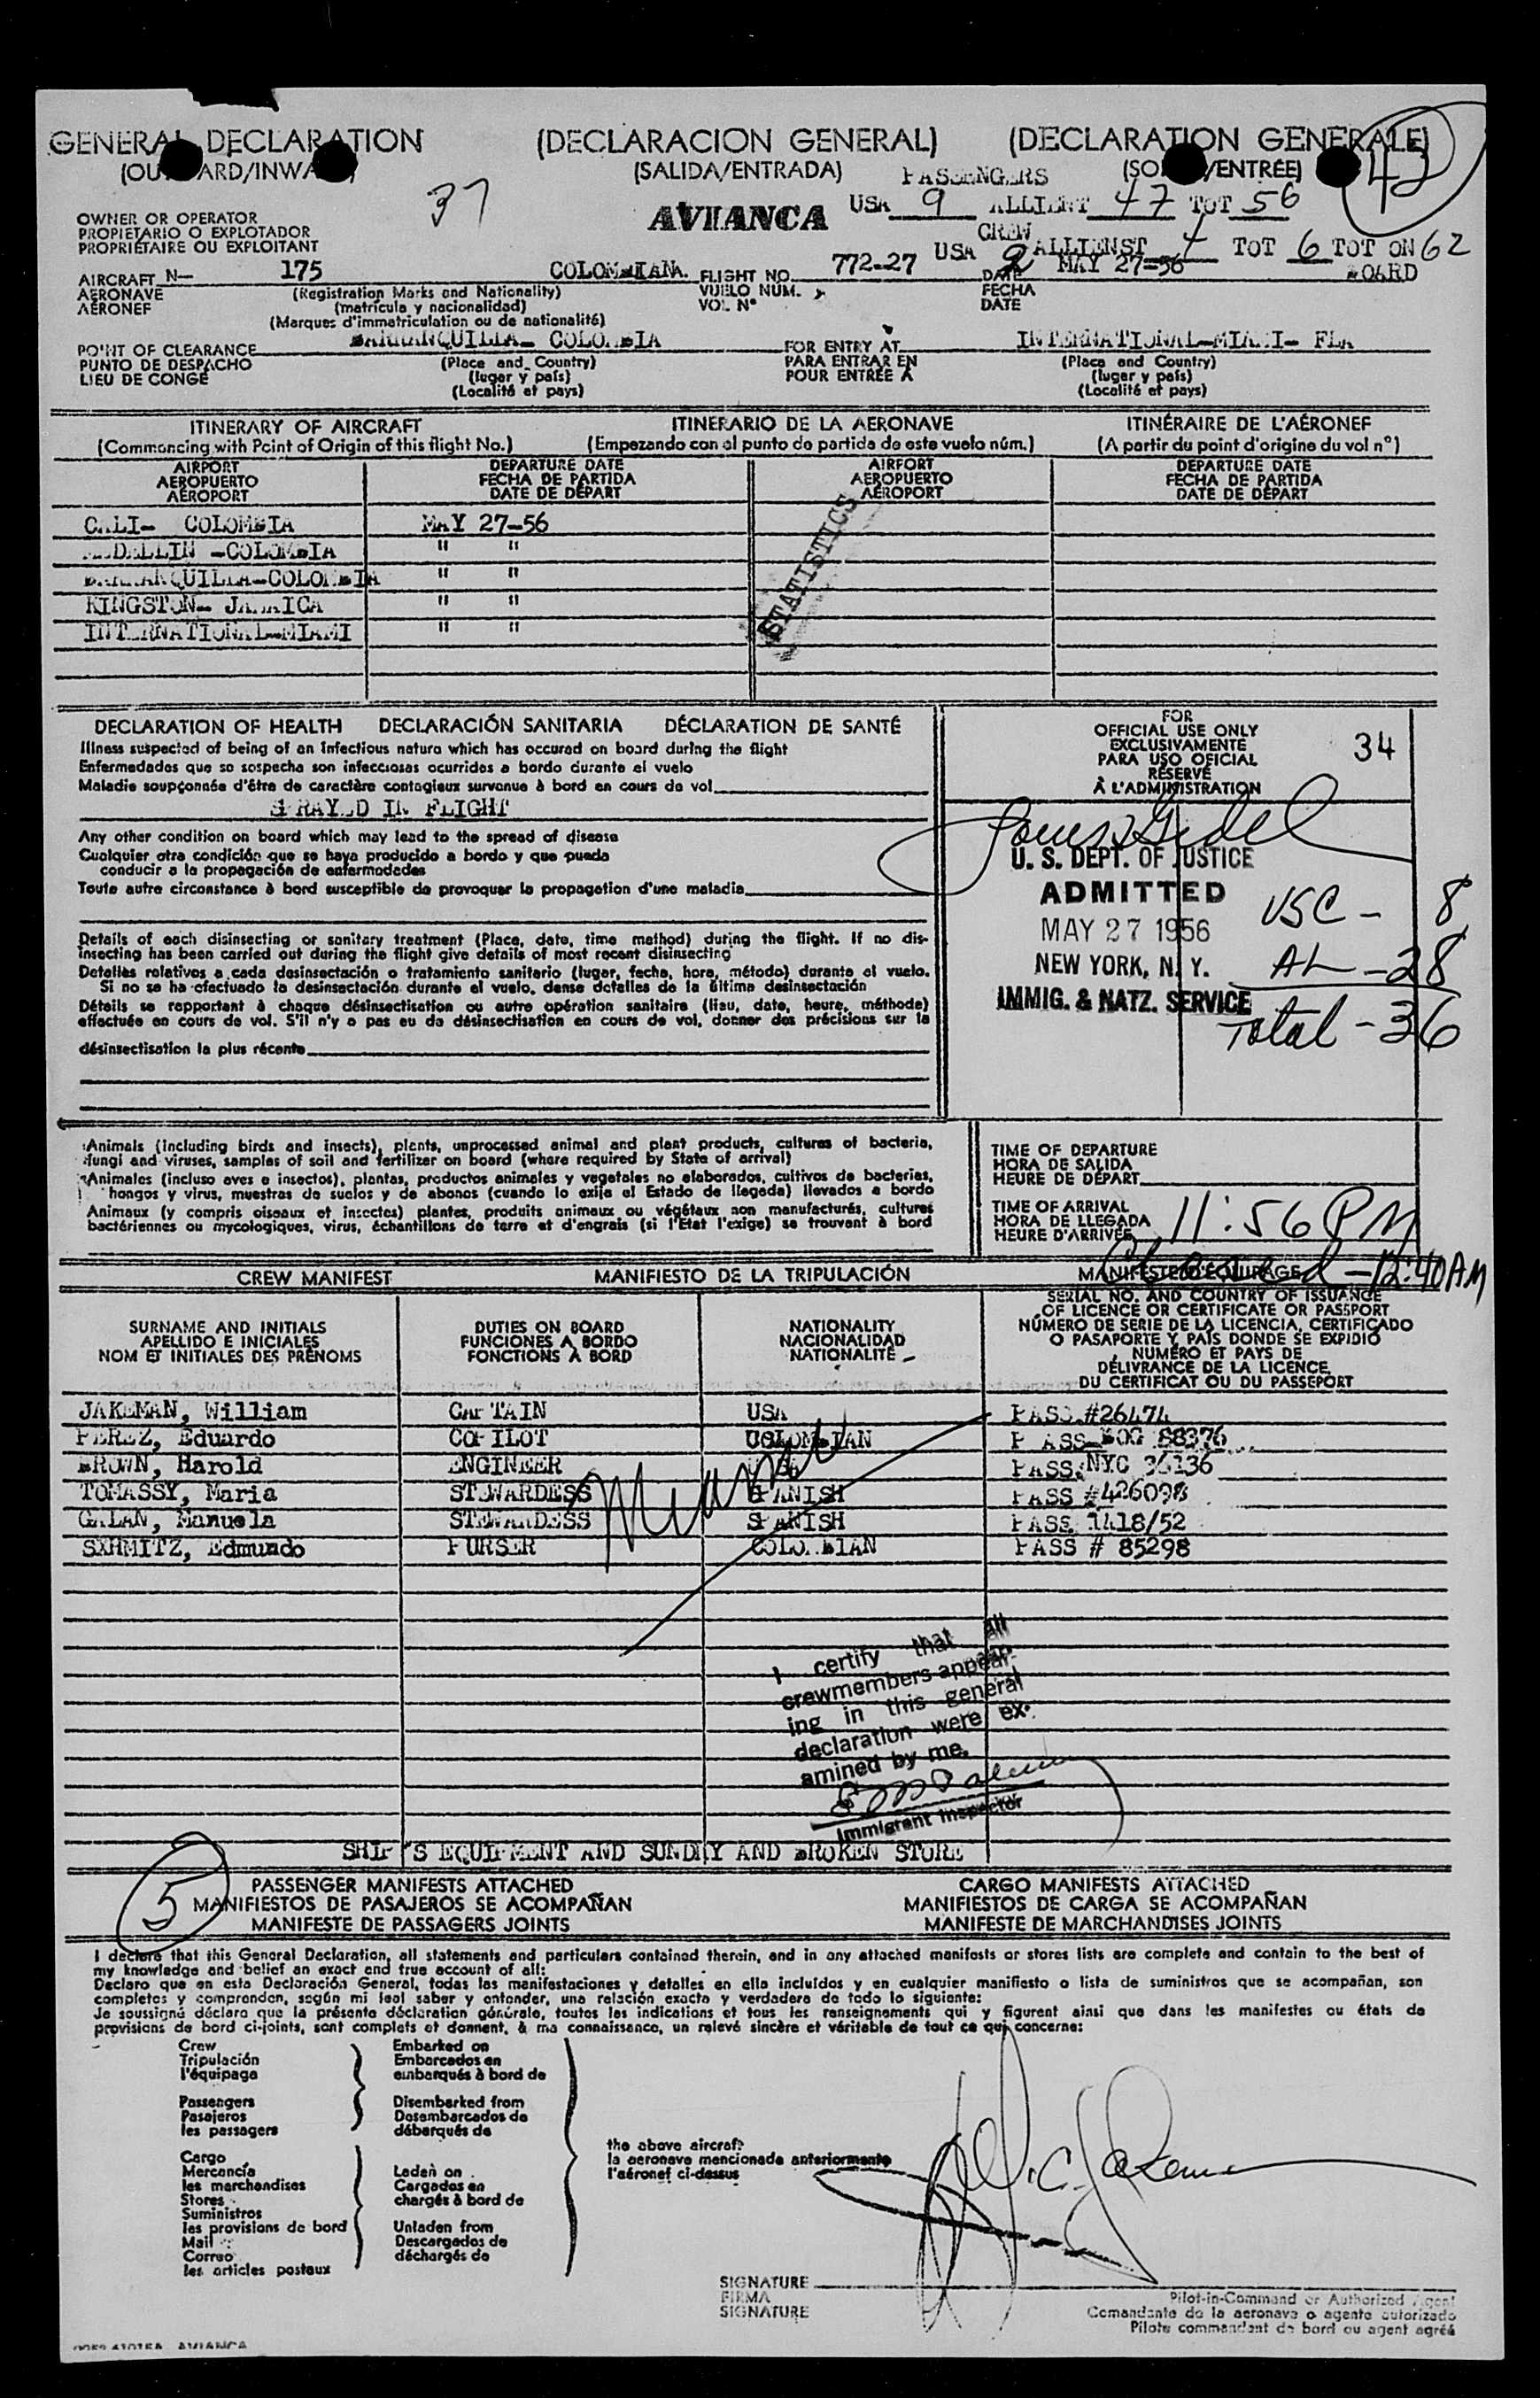 GENERAL DECLARATION (DECLARACION GENERAL) (DECLARATION GENERALE)
(SALIDA/ENTRADA)
PASSENGERS
37
42
OWNER OR OPERATOR
PROPIETARIO O EXPLOTADOR
PROPRIÉTAIRE OU EXPLOITANT
AVIANCA
USA 9 ALLIENT 47 TOT 56
CREW
USA 2 ALLIENST 4 TOT 6 TOT ON 62
BOARD
AIRCRAFT N- 175 COLOMBIANA FLIGHT NO. 772-27 DATE MAY 27-56
AERONAVE (Registration Marks and Nationality) VUELO NUM. FECHA
AÉRONEF (matrícula y nacionalidad) VOL N° DATE
(Marques d'immatriculation ou de nationalité)
POINT OF CLEARANCE BARRANQUILLA- COLOMBIA FOR ENTRY AT INTERNATIONAL-MIAMI- FLA
PUNTO DE DESPACHO (Place and Country) PARA ENTRAR EN (Place and Country)
LIEU DE CONGÉ (lugar y país) POUR ENTRÉE A (lugar y país)
(Localité et pays) (Localité et pays)
ITINERARY OF AIRCRAFT ITINERARIO DE LA AERONAVE ITINÉRAIRE DE L'AÉRONEF
(Commencing with Point of Origin of this flight No.) (Empezando con el punto de partida de este vuelo núm.) (A partir du point d'origine du vol n°)
AIRPORT DEPARTURE DATE AIRPORT DEPARTURE DATE
AEROPUERTO FECHA DE PARTIDA AEROPUERTO FECHA DE PARTIDA
AÉROPORT DATE DE DÉPART AÉROPORT DATE DE DÉPART
CALI- COLOMBIA MAY 27-56
MEDELLIN -COLOMBIA " "
BARRANQUILLA-COLOMBIA " "
KINGSTON- JAMAICA " "
INTERNATIONAL-MIAMI " "
STATISTICS
DECLARATION OF HEALTH DECLARACIÓN SANITARIA DÉCLARATION DE SANTÉ
Illness suspected of being of an Infectious nature which has occured on board during the flight
Enfermedades que se sospecha son infecciosas ocurridas a bordo durante el vuelo
Maladie soupçonnée d'être de caractère contagieux survenue à bord en cours de vol
SPRAYED IN FLIGHT
Any other condition on board which may lead to the spread of disease
Cualquier otra condición que se haya producido a bordo y que pueda
conducir a la propagación de enfermedades
Toute autre circonstance à bord susceptible de provoquer la propagation d'une maladie
Details of each disinsecting or sanitary treatment (Place, date, time method) during the flight. If no dis-
insecting has been carried out during the flight give details of most recent disinsecting
Detalles relativos a cada desinsectación o tratamiento sanitario (lugar, fecha, hora, método) durante el vuelo.
Si no se ha efectuado la desinsectación durante el vuelo, dense detalles de la última desinsectación
Détails se rapportant à chaque désinsectisation ou autre opération sanitaire (lieu, date, heure, méthode)
effectuée en cours de vol. S'il n'y a pas eu de désinsectisation en cours de vol, donner des précisions sur la
désinsectisation la plus récente
FOR
OFFICIAL USE ONLY
EXCLUSIVAMENTE
PARA USO OFICIAL
RÉSERVÉ
À L'ADMINISTRATION
34
U. S. DEPT. OF JUSTICE
ADMITTED
MAY 27 1956
NEW YORK, N. Y.
IMMIG. & NATZ. SERVICE
USC - 8
AL - 28
Total - 36
Animals (including birds and insects), plants, unprocessed animal and plant products, cultures of bacteria,
fungi and viruses, samples of soil and fertilizer on board (where required by State of arrival)
Animales (incluso aves e insectos), plantas, productos animales y vegetales no elaborados, cultivos de bacterias,
hongos y virus, muestras de suelos y de abonos (cuando lo exija el Estado de llegada) llevados a bordo
Animaux (y compris oiseaux et insectes) plantes, produits animaux ou végétaux non manufacturés, cultures
bactériennes ou mycologiques, virus, échantillons de terre et d'engrais (si l'Etat l'exige) se trouvant à bord
TIME OF DEPARTURE
HORA DE SALIDA
HEURE DE DÉPART
TIME OF ARRIVAL
HORA DE LLEGADA
HEURE D'ARRIVÉE 11:56 PM
Cleared - 12:40 AM
CREW MANIFEST MANIFIESTO DE LA TRIPULACIÓN MANIFESTE D'ÉQUIPAGE
SURNAME AND INITIALS DUTIES ON BOARD NATIONALITY
APELLIDO E INICIALES FUNCIONES A BORDO NACIONALIDAD
NOM ET INITIALES DES PRÉNOMS FONCTIONS À BORD NATIONALITÉ
SERIAL NO. AND COUNTRY OF ISSUANCE
OF LICENCE OR CERTIFICATE OR PASSPORT
NÚMERO DE SERIE DE LA LICENCIA, CERTIFICADO
O PASAPORTE Y PAÍS DONDE SE EXPIDIÓ
NUMÉRO ET PAYS DE
DÉLIVRANCE DE LA LICENCE
DU CERTIFICAT OU DU PASSEPORT
JAKEMAN, William CAPTAIN USA PASS #26474
PEREZ, Eduardo COPILOT COLOMBIAN PASS BOG 88376
BROWN, Harold ENGINEER PASS NYC 36136
TOMASSY, Maria STEWARDESS SPANISH PASS #426098
GALAN, Manuela STEWARDESS SPANISH PASS 1418/52
SXHMITZ, Edmundo PURSER COLOMBIAN PASS # 85298
Miami
I certify that all
crewmembers appear-
ing in this general
declaration were ex-
amined by me.
Immigrant Inspector
SHIP'S EQUIPMENT AND SUNDRY AND BROKEN STORE
5
PASSENGER MANIFESTS ATTACHED CARGO MANIFESTS ATTACHED
MANIFIESTOS DE PASAJEROS SE ACOMPAÑAN MANIFIESTOS DE CARGA SE ACOMPAÑAN
MANIFESTE DE PASSAGERS JOINTS MANIFESTE DE MARCHANDISES JOINTS
I declare that this General Declaration, all statements and particulars contained therein, and in any attached manifests or stores lists are complete and contain to the best of
my knowledge and belief an exact end true account of all:
Declaro que en esta Declaración General, todas las manifestaciones y detalles en ella incluídos y en cualquier manifiesto o lista de suministros que se acompañan, son
completos y comprenden, según mi leal saber y entender, una relación exacta y verdadera de todo lo siguiente:
Je soussigné déclare que la présente déclaration générale, toutes les indications et tous les renseignements qui y figurent ainsi que dans les manifestes ou états de
provisions de bord ci-joints, sont complets et donnent, à ma connaissance, un relevé sincère et véritable de tout ce qui concerne:
Crew Embarked on
Tripulación Embarcados en
l'équipage embarqués à bord de
Passengers Disembarked from
Pasajeros Desembarcados de
les passagers débarqués de
Cargo
Mercancía Laden on
les marchandises Cargados en
Stores chargés à bord de
Suministros
les provisions de bord Unladen from
Mail Descargados de
Correo déchargés de
les articles postaux
the above aircraft
la aeronave mencionada anteriormente
l'aéronef ci-dessus
SIGNATURE
FIRMA
SIGNATURE
Pilot-in-Command or Authorized Agent
Comandante de la aeronave o agente autorizado
Pilote commandant de bord ou agent agréé
AVIANCA